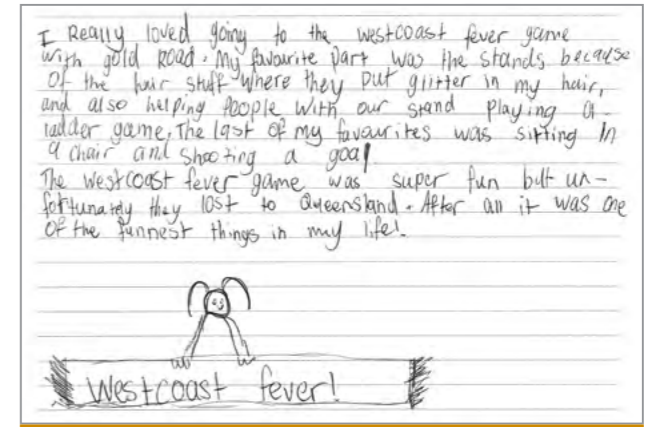 I Really loved going to the westcoast fever game
with gold Road. My favourite part was the stands because
Of the hair stuff where they put glitter in my hair,
and also helping people with our stand playing a
ladder game, The last of my favourites was sitting In
a chair and shooting a goal
The westcoast fever game was super fun but un-
fortunately they lost to Queensland. After all it was one
Of the funnest things in my life!
Westcoast fever!